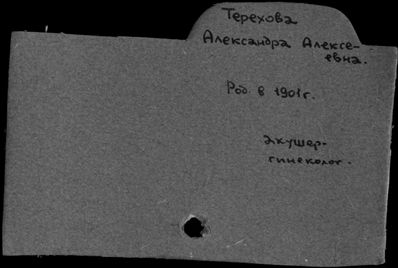 Терехова
Александра Алексе-
евна.
Род. в 1901г.
Акушер-
гинеколог.